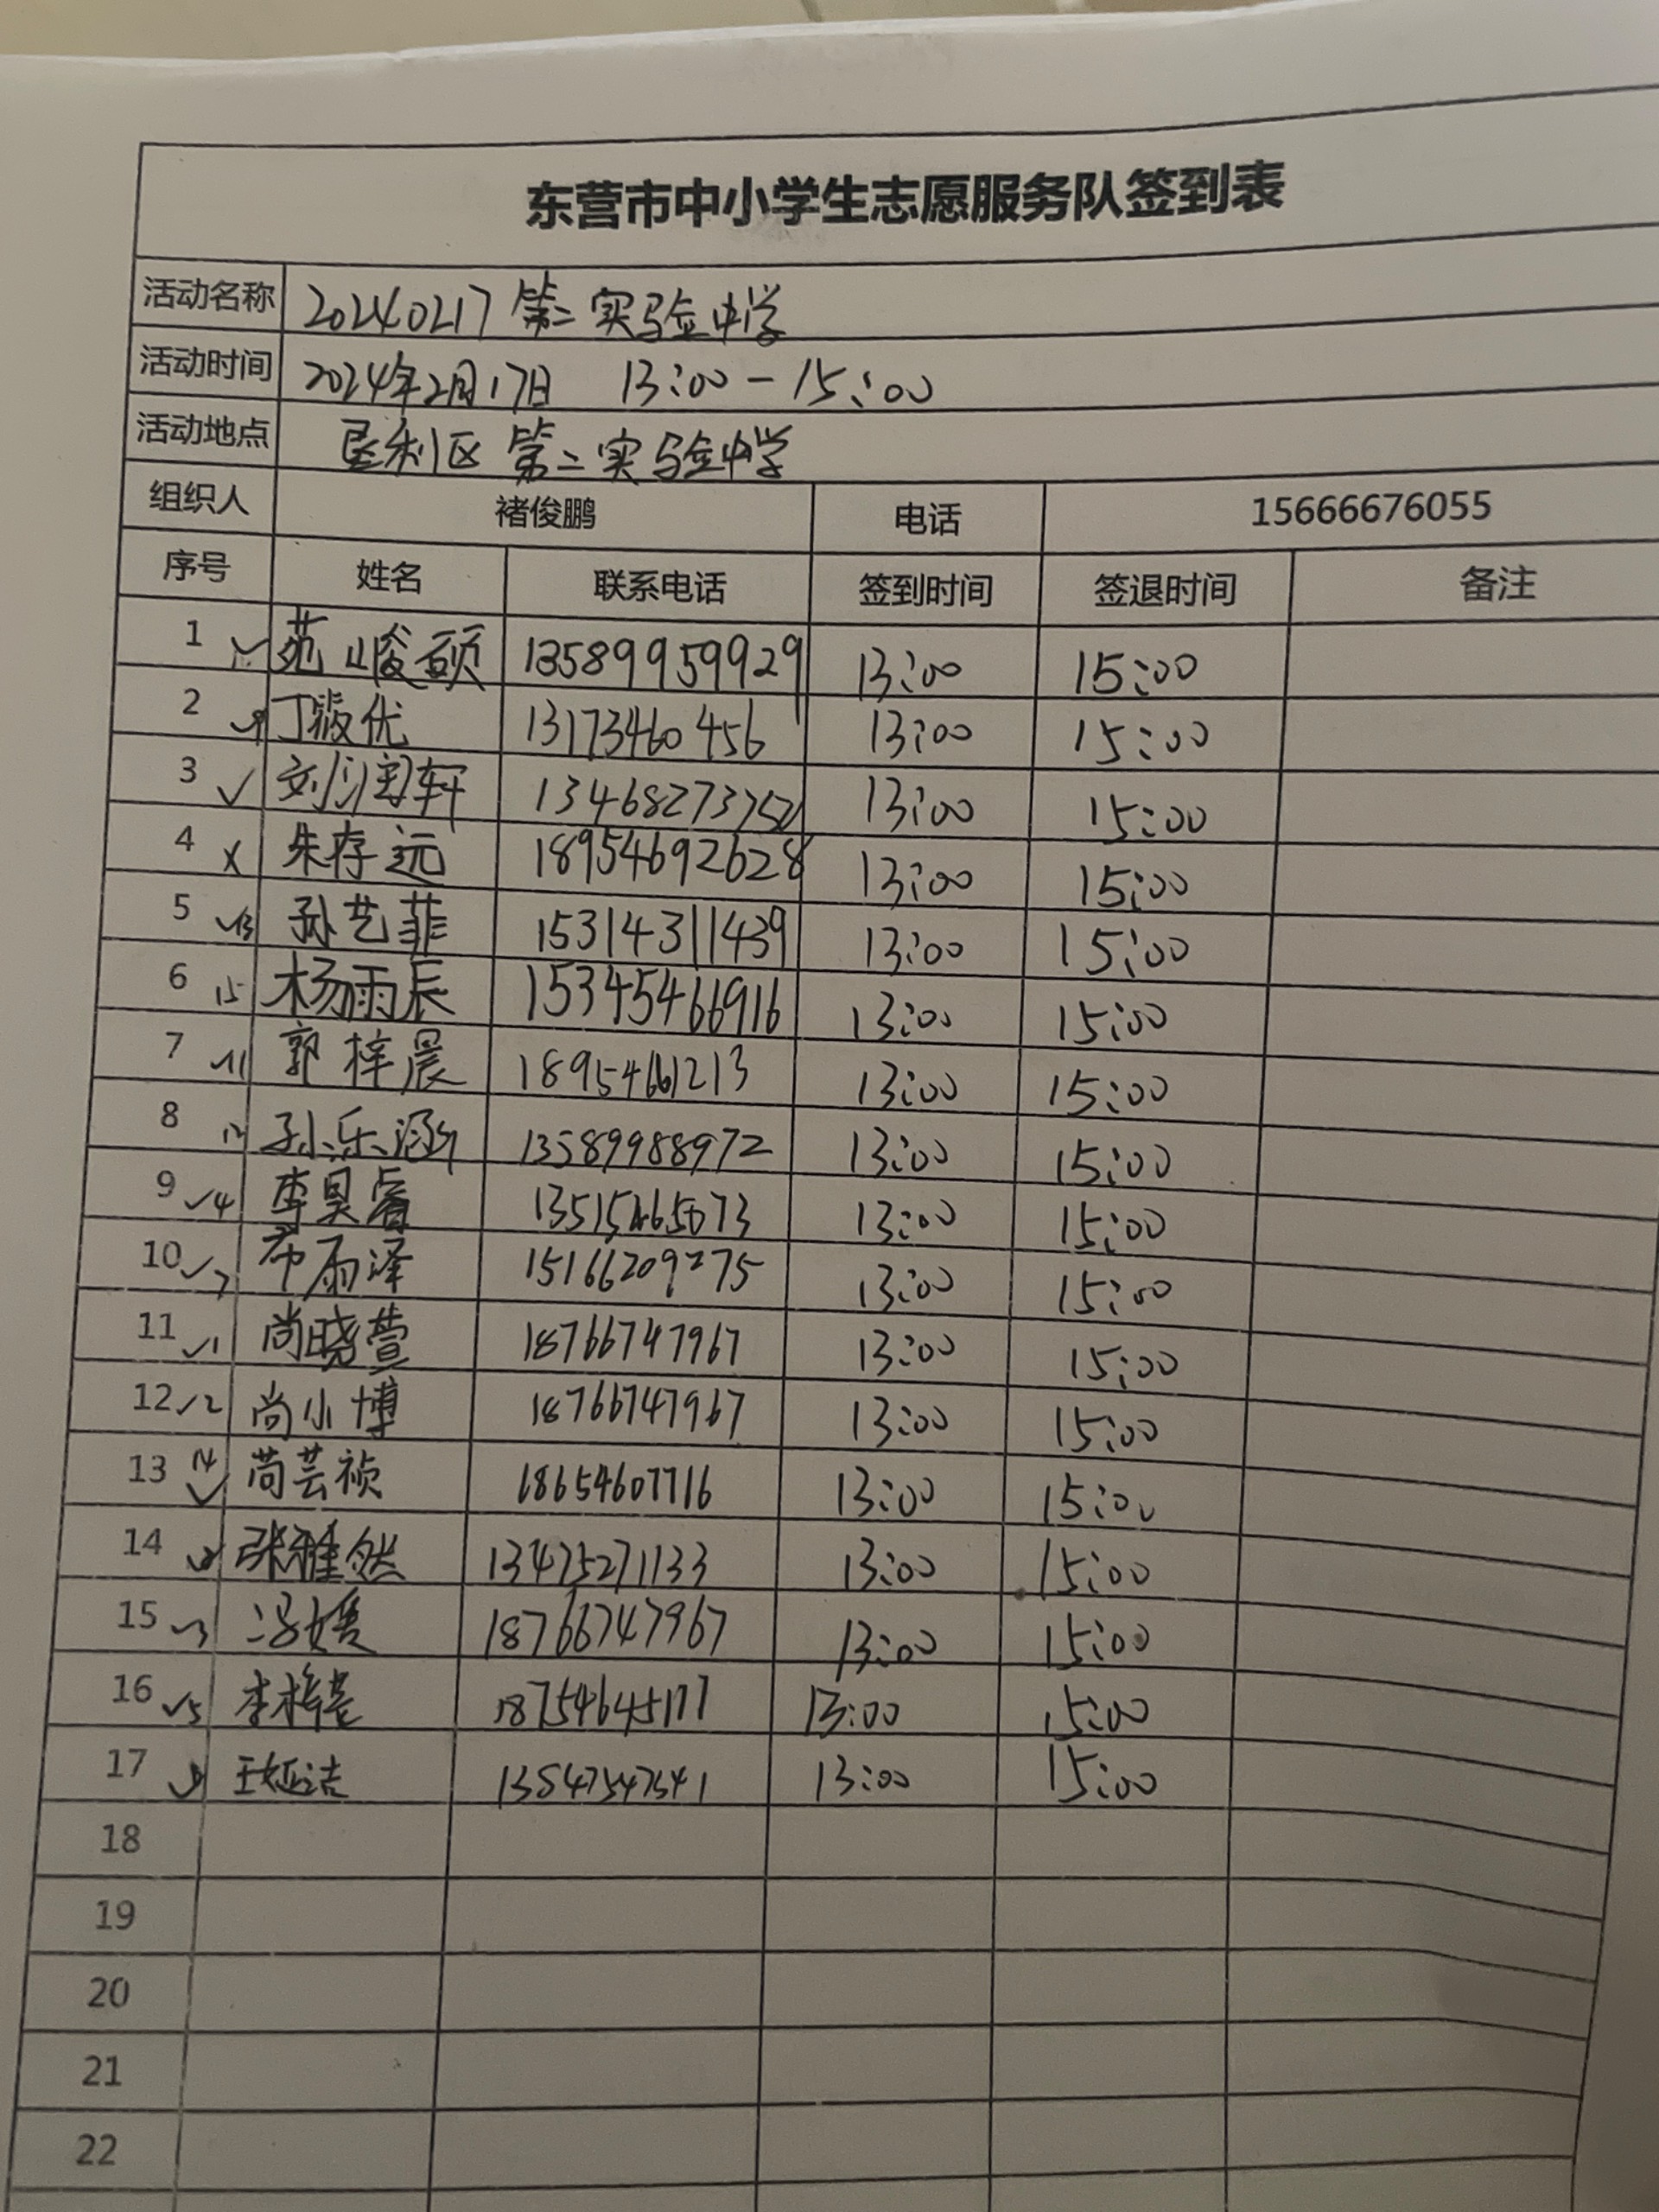 东营市中小学生志愿服务队签到表
活动名称 20240217 第二实验中学
活动时间 2024年2月17日 13:00-15:00
活动地点 垦利区第二实验中学
组织人 褚俊鹏 电话 15666676055
序号 姓名 联系电话 签到时间 签退时间 备注
1 苑峻硕 13589959929 13:00 15:00
2 丁筱优 13173460456 13:00 15:00
3 ✓ 刘润轩 13:00 15:00
4 x 朱存远 18954692628 13:00 15:00
5 ✓13 孙艺菲 15314311439 13:00 15:00
6 15 杨雨辰 15345466916 13:00 15:00
7 ✓11 郭梓晨 18954661213 13:00 15:00
8 12 孙乐涵 13589988972 13:00 15:00
9 ✓4 李昊睿 13:00 15:00
10 ✓7 雨泽 15166209275 13:00 15:00
11 ✓1 尚晓萱 18766747967 13:00 15:00
12 ✓2 尚小博 18766747967 13:00 15:00
13 14 ✓ 芸祯 18654607716 13:00 15:00
14 张雅然 13475271133 13:00 15:00
15 ✓3 冯媛 18766747967 13:00 15:00
16 ✓5 李 13:00 15:00
17 王娅洁 13:00 15:00
18
19
20
21
22